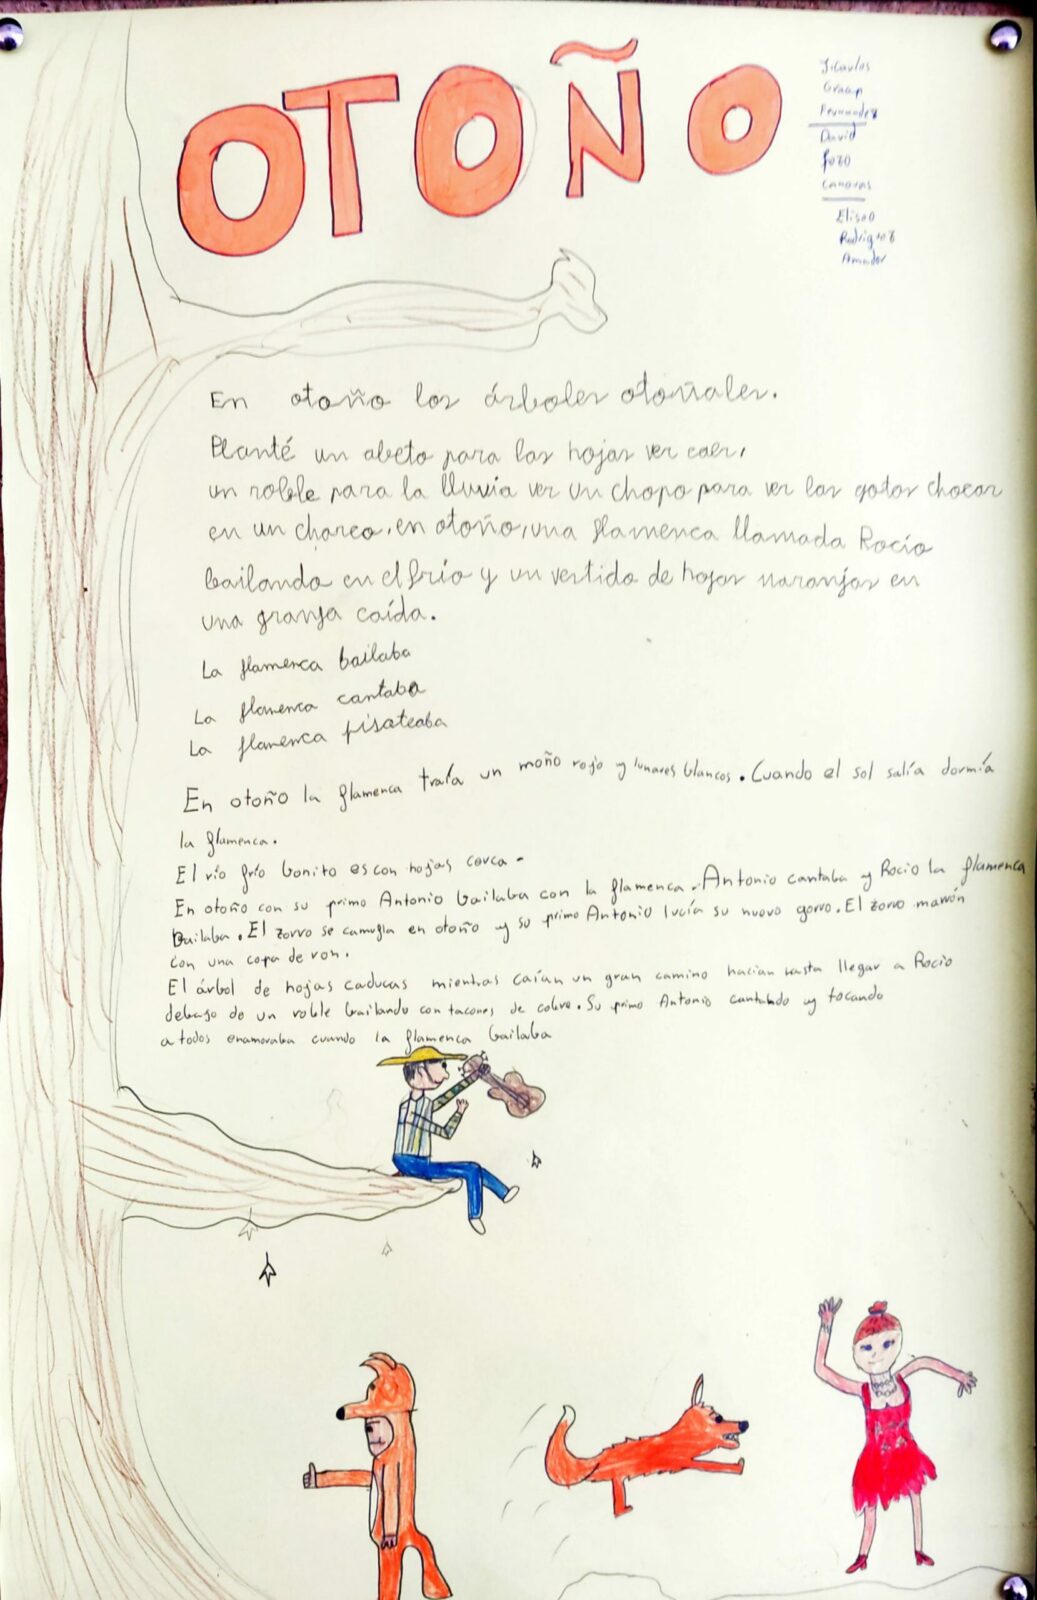 OTOÑO
J. Carlos
Fernandez
David
Pozo
Canovas
Eliseo
Rodriguez
Amador
En otoño los árboles otoñales.
Planté un abeto para las hojas ver caer,
un roble para la lluvia ver un chopo para ver las gotas chocar
en un charco, en otoño, una flamenca llamada Rocío
bailando en el frío y un vestido de hojas naranjas en
una granja caída.
La flamenca bailaba
La flamenca cantaba
La flamenca pisateaba
En otoño la flamenca traía un moño rojo y lunares blancos. Cuando el sol salía dormía
la flamenca.
El río frío bonito es con hojas cerca.
En otoño con su primo Antonio bailaba con la flamenca. Antonio cantaba y Rocio la flamenca
Bailaba. El zorro se camufla en otoño y su primo Antonio lucía su nuevo gorro. El zorro marrón
con una copa de ron.
El árbol de hojas caducas mientras caían un gran camino hacian hasta llegar a Rocio
debajo de un roble bailando con tacones de cobre. Su primo Antonio cantando y tocando
a todos enamoraba cuando la flamenca bailaba